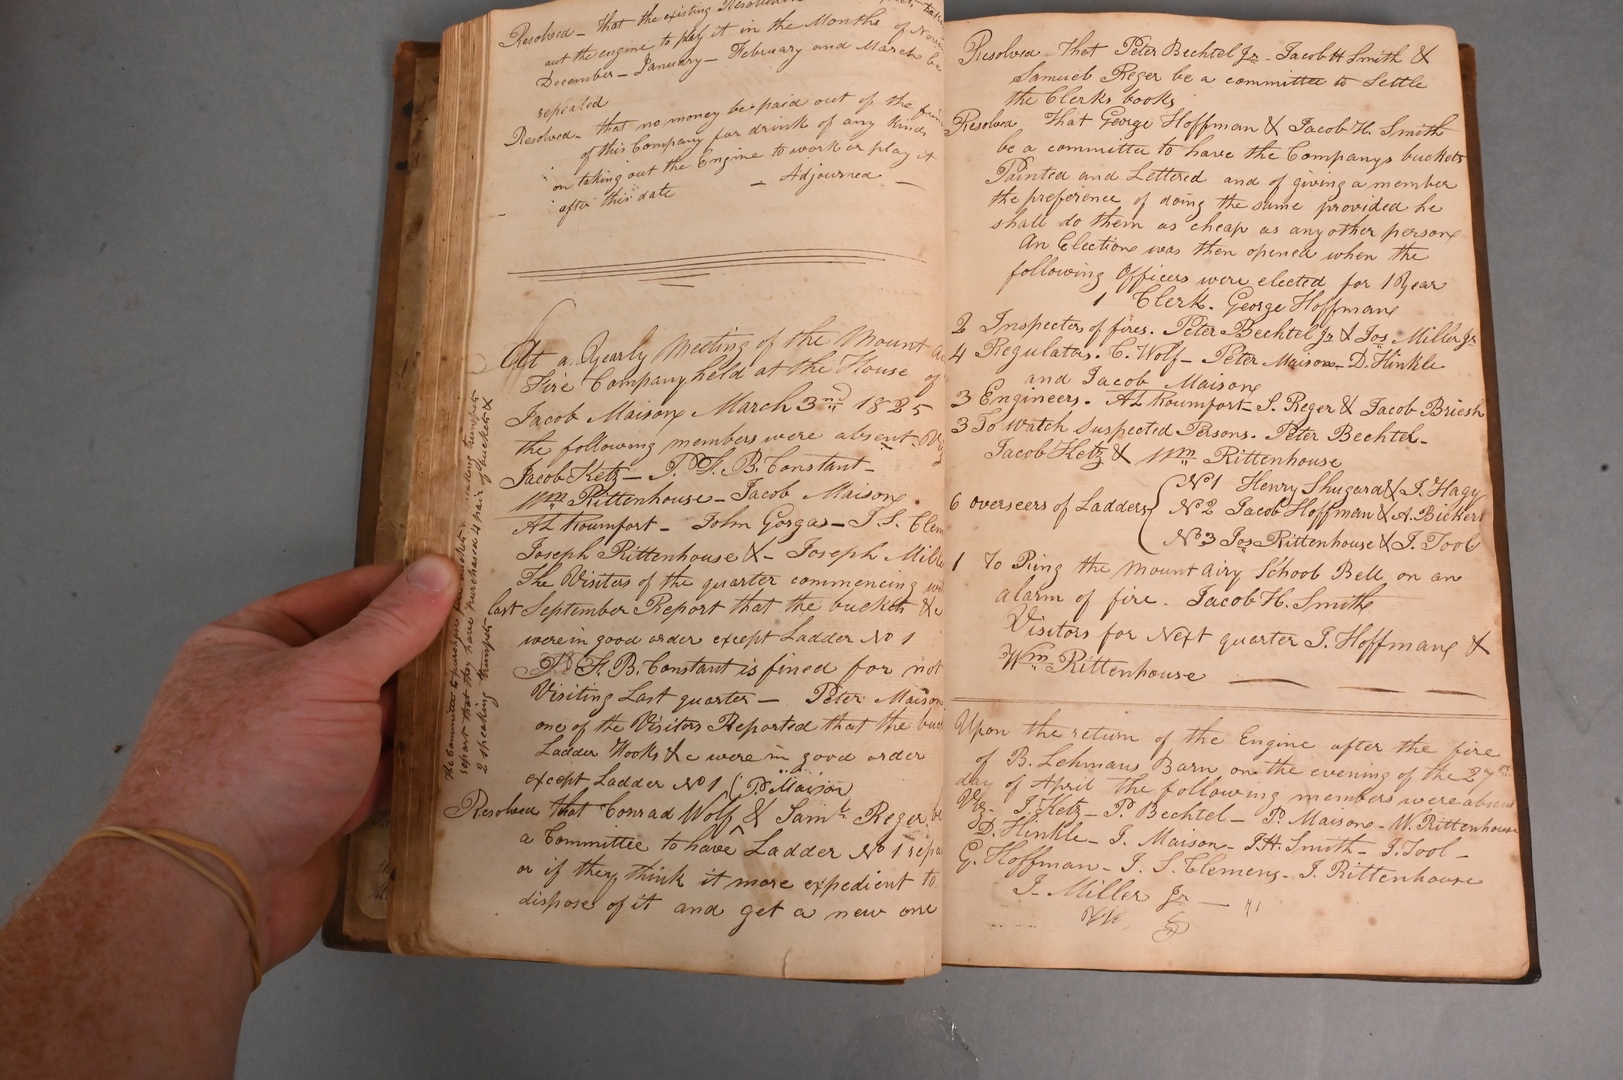 Resolved – that the existing
out the engine to play it in the Months of
December – January – February and March be
repealed
Resolved – that no money be paid out of the
of this Company for drink of any kind
on taking out the Engine to work or play it
after this date – Adjourned –
At a Yearly Meeting of the Mount
Fire Company held at the House of
Jacob Maison March 3nd 1825
the following members were absent
Jacob Ketz – T. B. Constant –
Wm Rittenhouse – Jacob Maison .
Al Roumfort – John Gorgas – J. S. Clem
Joseph Rittenhouse & – Joseph Mille
The Visitors of the quarter commencing
last September Report that the buckets &c
were in good order except Ladder No 1
B. Constant is fined for not
Visiting Last quarter – Peter Maison
one of the Visitors Reported that the buc
Ladder Hooks &c were in good order
except Ladder No 1 (P. Maison
Resolved that Conrad Wolf & Saml Reger be
a Committee to have Ladder No 1 repa
or if they think it more expedient to
dispose of it and get a new one
the Committee to purchase
report that they have purchased 4 pair of buckets &
2 speaking trumpets
Resolved That Peter Bechtel Jr – Jacob H Smith &
Samuel Reger be a committee to Settle
the Clerks books
Resolved That George Hoffman & Jacob H. Smith
be a committee to have the Companys buckets
Painted and Lettered and of giving a member
the preference of doing the same provided he
shall do them as cheap as any other person
An Election was then opened when the
following Officers were elected for 1 Year
1 Clerk. George Hoffman
2 Inspecters of fires. Peter Bechtel Jr & Jos Miller Jr
4 Regulators. C. Wolf – Peter Maison – D. Hinkle
and Jacob Maison
3 Engineers. Al Roumfort – S. Reger & Jacob Briesh
3 To Watch Suspected Persons. Peter Bechtel –
Jacob Ketz & Wm Rittenhouse
No 1 Henry Shugard & J. Hagy
6 overseers of Ladders No 2 Jacob Hoffman & A. Bickert
No 3 Jos Rittenhouse & J. Tool
1 To Ring the Mount airy School Bell, on an
alarm of fire. Jacob H. Smith
Visitors for Next quarter J. Hoffman &
Wm Rittenhouse
Upon the return of the Engine after the fire
of B. Lehmans Barn on the evening of the 27th
day of April the following members were absent
Viz. J. Ketz – P. Bechtel – P. Maison – W. Rittenhouse
D. Hinkle – J. Maison – J. H. Smith – J. Tool –
G. Hoffman – J. S. Clemens – J. Rittenhouse
J. Miller Jr –